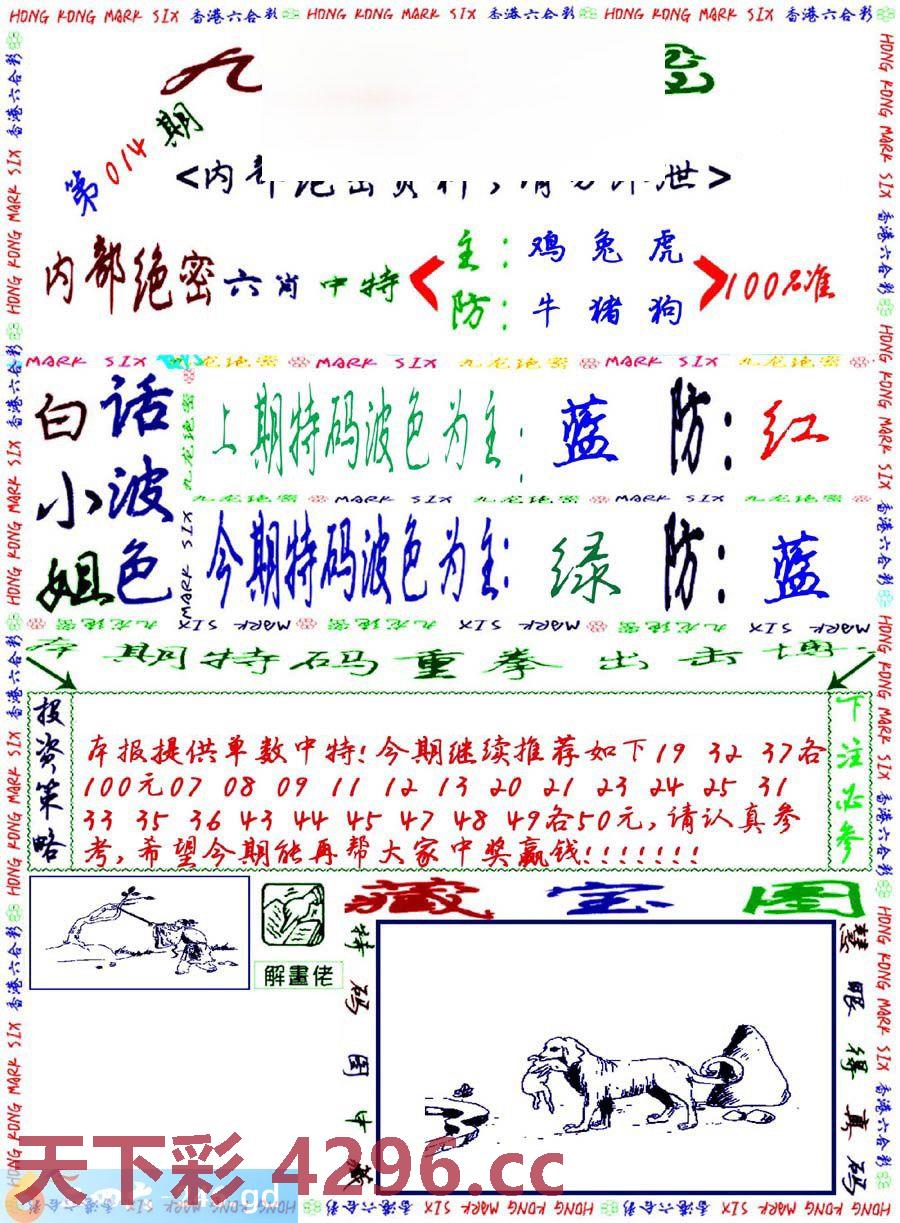 HONG KONG MARK SIX 香港六合彩 HONG KONG MARK SIX 香港六合彩 HONG KONG MARK SIX 香港六合彩
九
第014期
<内部
世>
内部绝密六肖中特
主:鸡兔虎
防:牛猪狗
100%准
MARK SIX 九龙绝密 MARK SIX 九龙绝密 MARK SIX 九龙绝密
白话
小波
姐色
上期特码波色为主:蓝 防:红
九龙绝密 MARK SIX 九龙绝密 MARK SIX 九龙绝密
今期特码波色为主:绿 防:蓝
期特码重拳出击
投资策略
本报提供单数中特!今期继续推荐如下19 32 37各
100元07 08 09 11 12 13 20 21 23 24 25 31
33 35 36 43 44 45 47 48 49各50元,请认真参
考,希望今期能再帮大家中奖赢钱!!!!!!!
下注必参
解畫佬
藏宝图
特码图中藏
慧眼得真码
天下彩 4296.cc